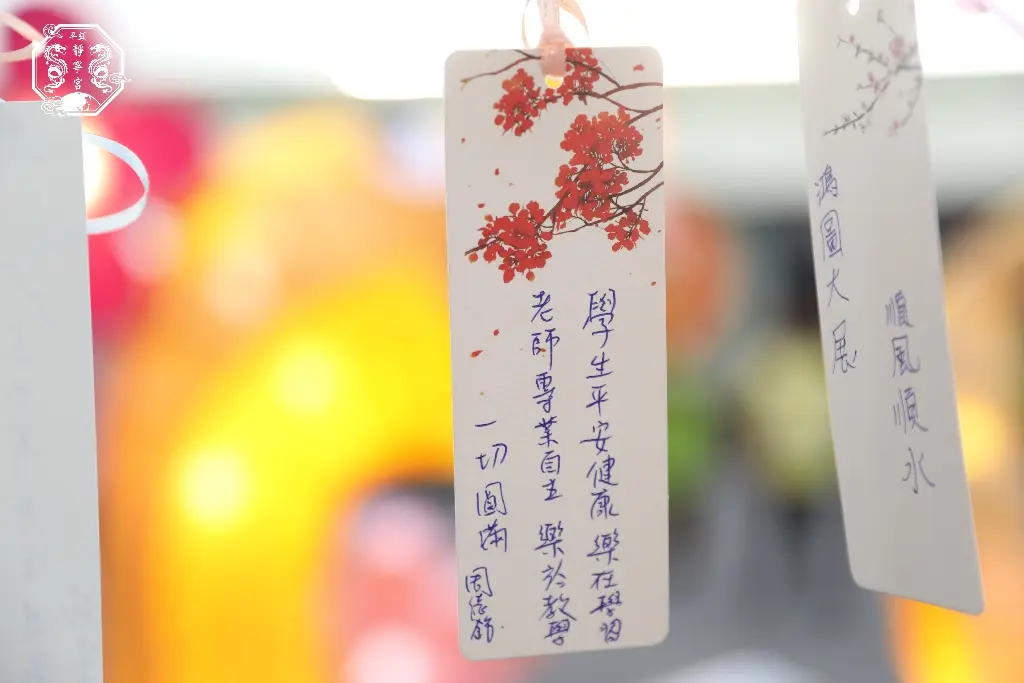 草嶺
靜寧宮
學生平安健康 樂在學習
老師專業自主 樂於教學
一切圓滿
順風順水
鴻圖大展